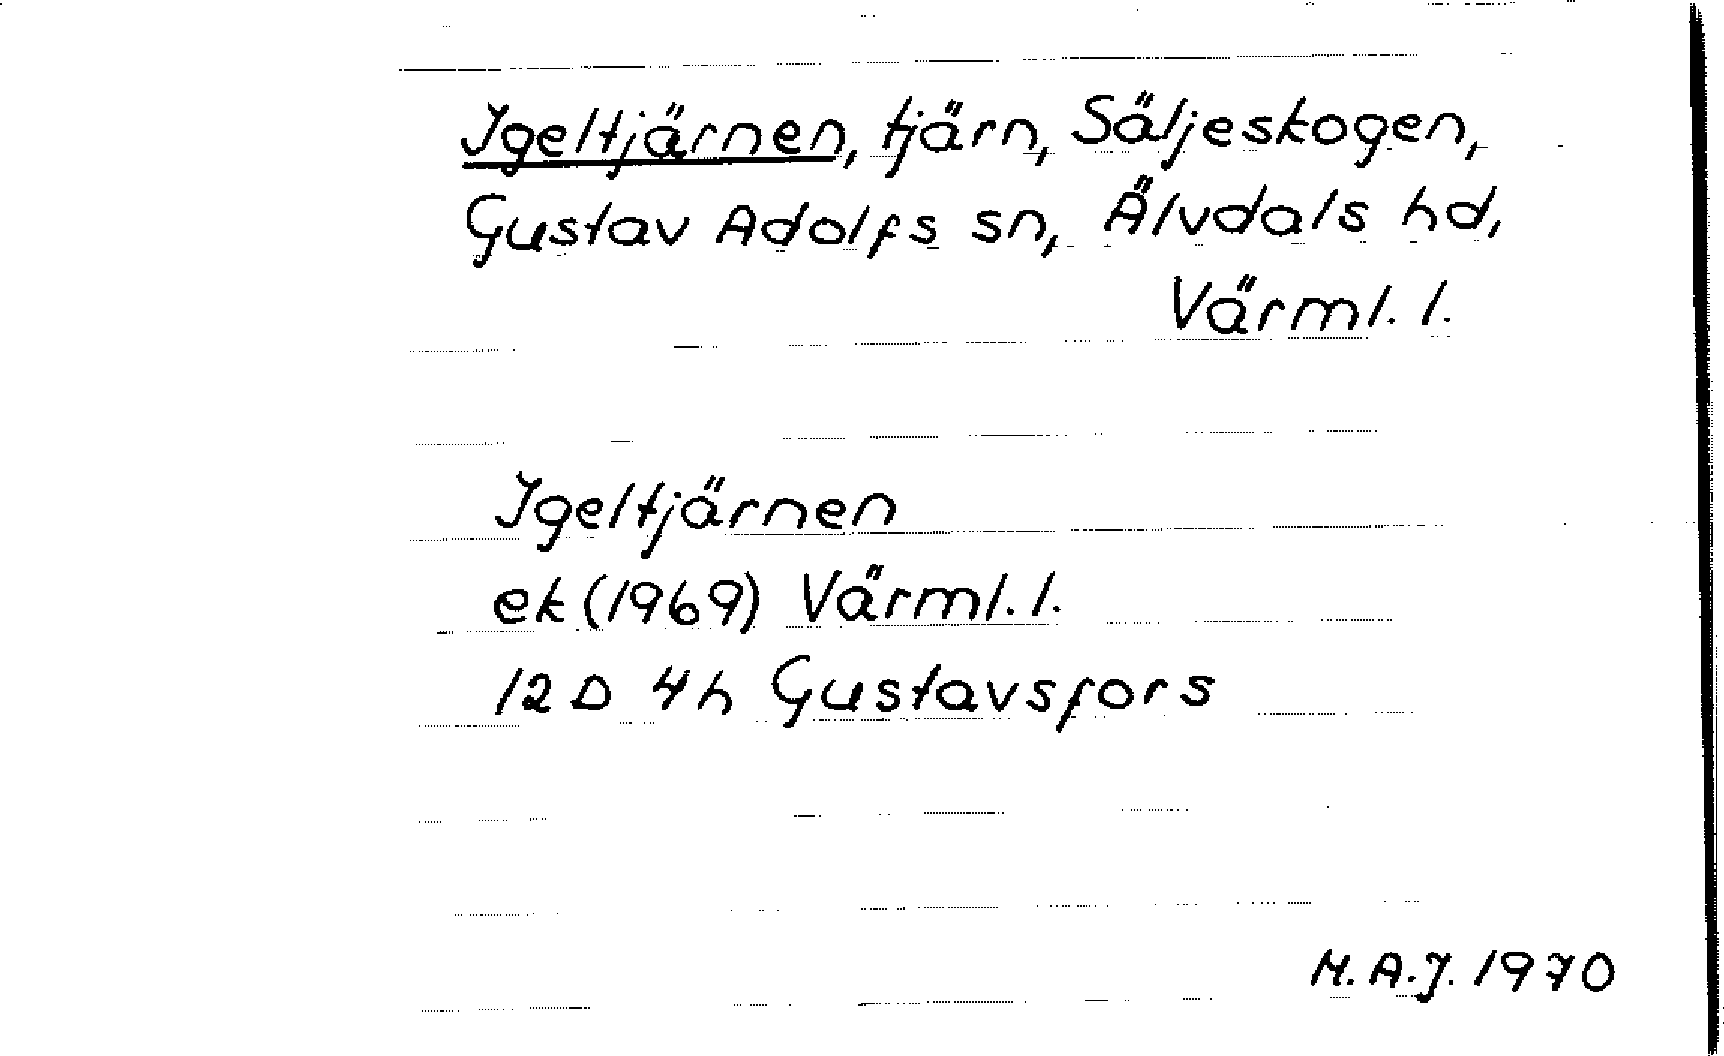 Igeltjärnen, tjärn, Säljeskogen,
Gustav Adolfs sn, Älvdals hd,
Värml. l.
Igeltjärnen
ek (1969) Värml. l.
12 D 4 h Gustavsfors
M. A. J. 1970